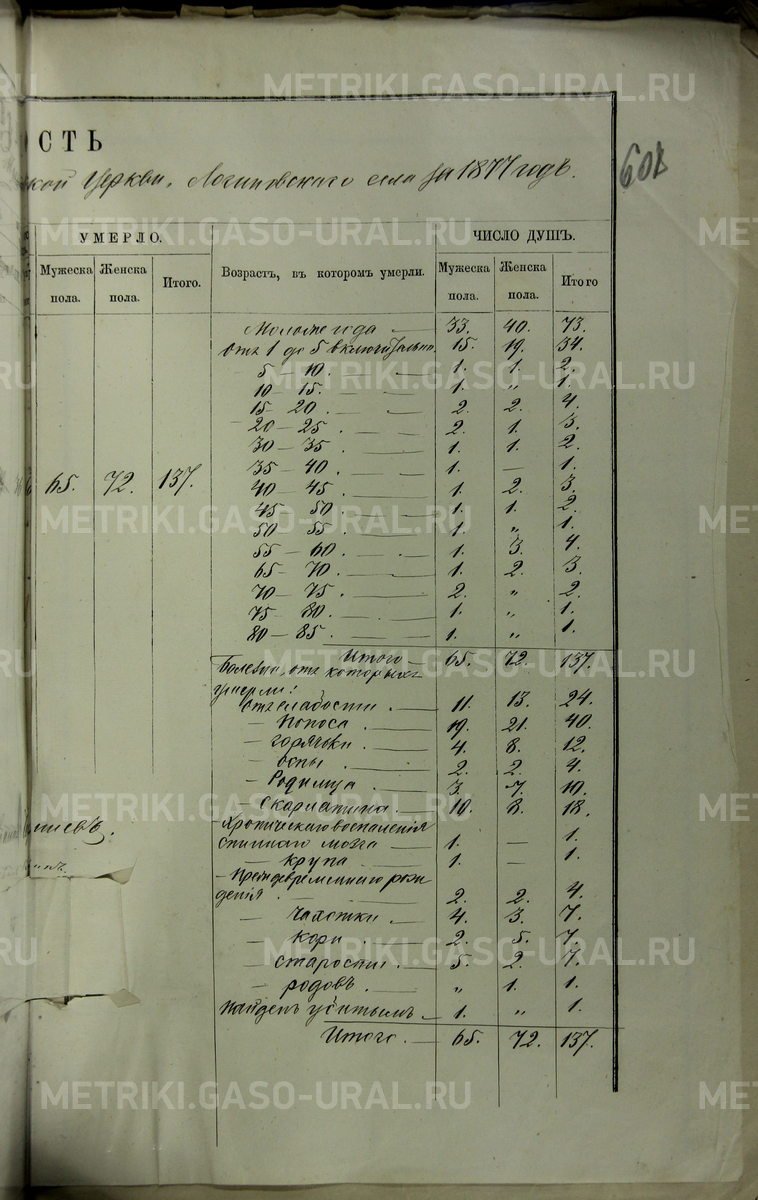 METRIKI.GASO-URAL.RU
СТЬ
кой Церкви, Логиновскаго села за 1877 годъ.
601
УМЕРЛО.
ЧИСЛО ДУШЪ.
Мужеска пола.
Женска пола.
Итого.
Возрастъ, въ которомъ умерли.
Мужеска пола.
Женска пола.
Итого
65. 72. 137.
Моложе года — 33. 40. 73.
Отъ 1 до 5 включительно. 15. 19. 34.
5 — 10. — 1. 1. 2.
10 — 15. — 1. „ 1.
15 — 20. — 2. 2. 4.
20 — 25. — 2. 1. 3.
30 — 35. — 1. 1. 2.
35 — 40. — 1. — 1.
40 — 45. — 1. 2. 3.
45 — 50. — 1. 1. 2.
50 — 55. — 1. „ 1.
55 — 60. — 1. 3. 4.
65 — 70. — 1. 2. 3.
70 — 75. — 2. „ 2.
75 — 80. — 1. „ 1.
80 — 85. — 1. „ 1.
Итого — 65. 72. 137.
Болезни, отъ которыхъ
умерли:
Отъ слабости. — 11. 13. 24.
— Поноса. — 19. 21. 40.
— горячки. — 4. 8. 12.
— оспы. — 2. 2. 4.
— Родимца. — 3. 7. 10.
— Скарлатина. — 10. 8. 18.
— Хроническаго воспаленія
спиннаго мозга — 1. — 1.
— крупа — 1. — 1.
— Преждевременнаго рож
денія. — 2. 2. 4.
— Чахотки. — 4. 3. 7.
— Кори. — 2. 5. 7.
— старости. — 5. 2. 7.
— родовъ. — „ 1. 1.
Найденъ убитымъ — 1. „ 1.
Итого. — 65. 72. 137.